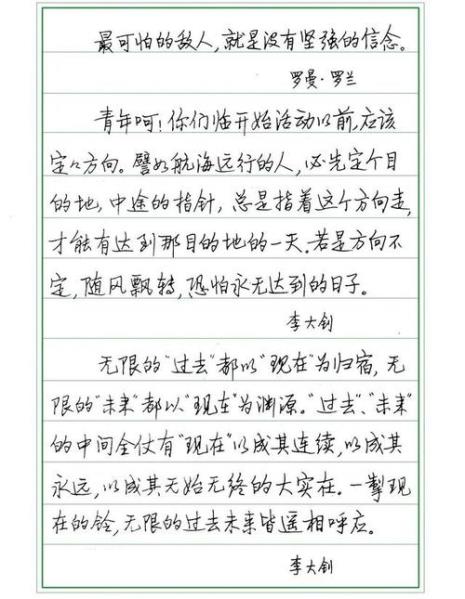 最可怕的敌人,就是没有坚强的信念。
罗曼·罗兰
青年呵!你们临开始活动以前,应该
定々方向。譬如航海远行的人,必先定个目
的地,中途的指针,总是指着这个方向走,
才能有达到那目的地的一天。若是方向不
定,随风飘转,恐怕永无达到的日子。
李大钊
无限的"过去"都以"现在"为归宿,无
限的"未来"都以"现在"为渊源。"过去"、"未来"
的中间全仗有"现在"以成其连续,以成其
永远,以成其无始无终的大实在。一掣现
在的铃,无限的过去未来皆遥相呼应。
李大钊